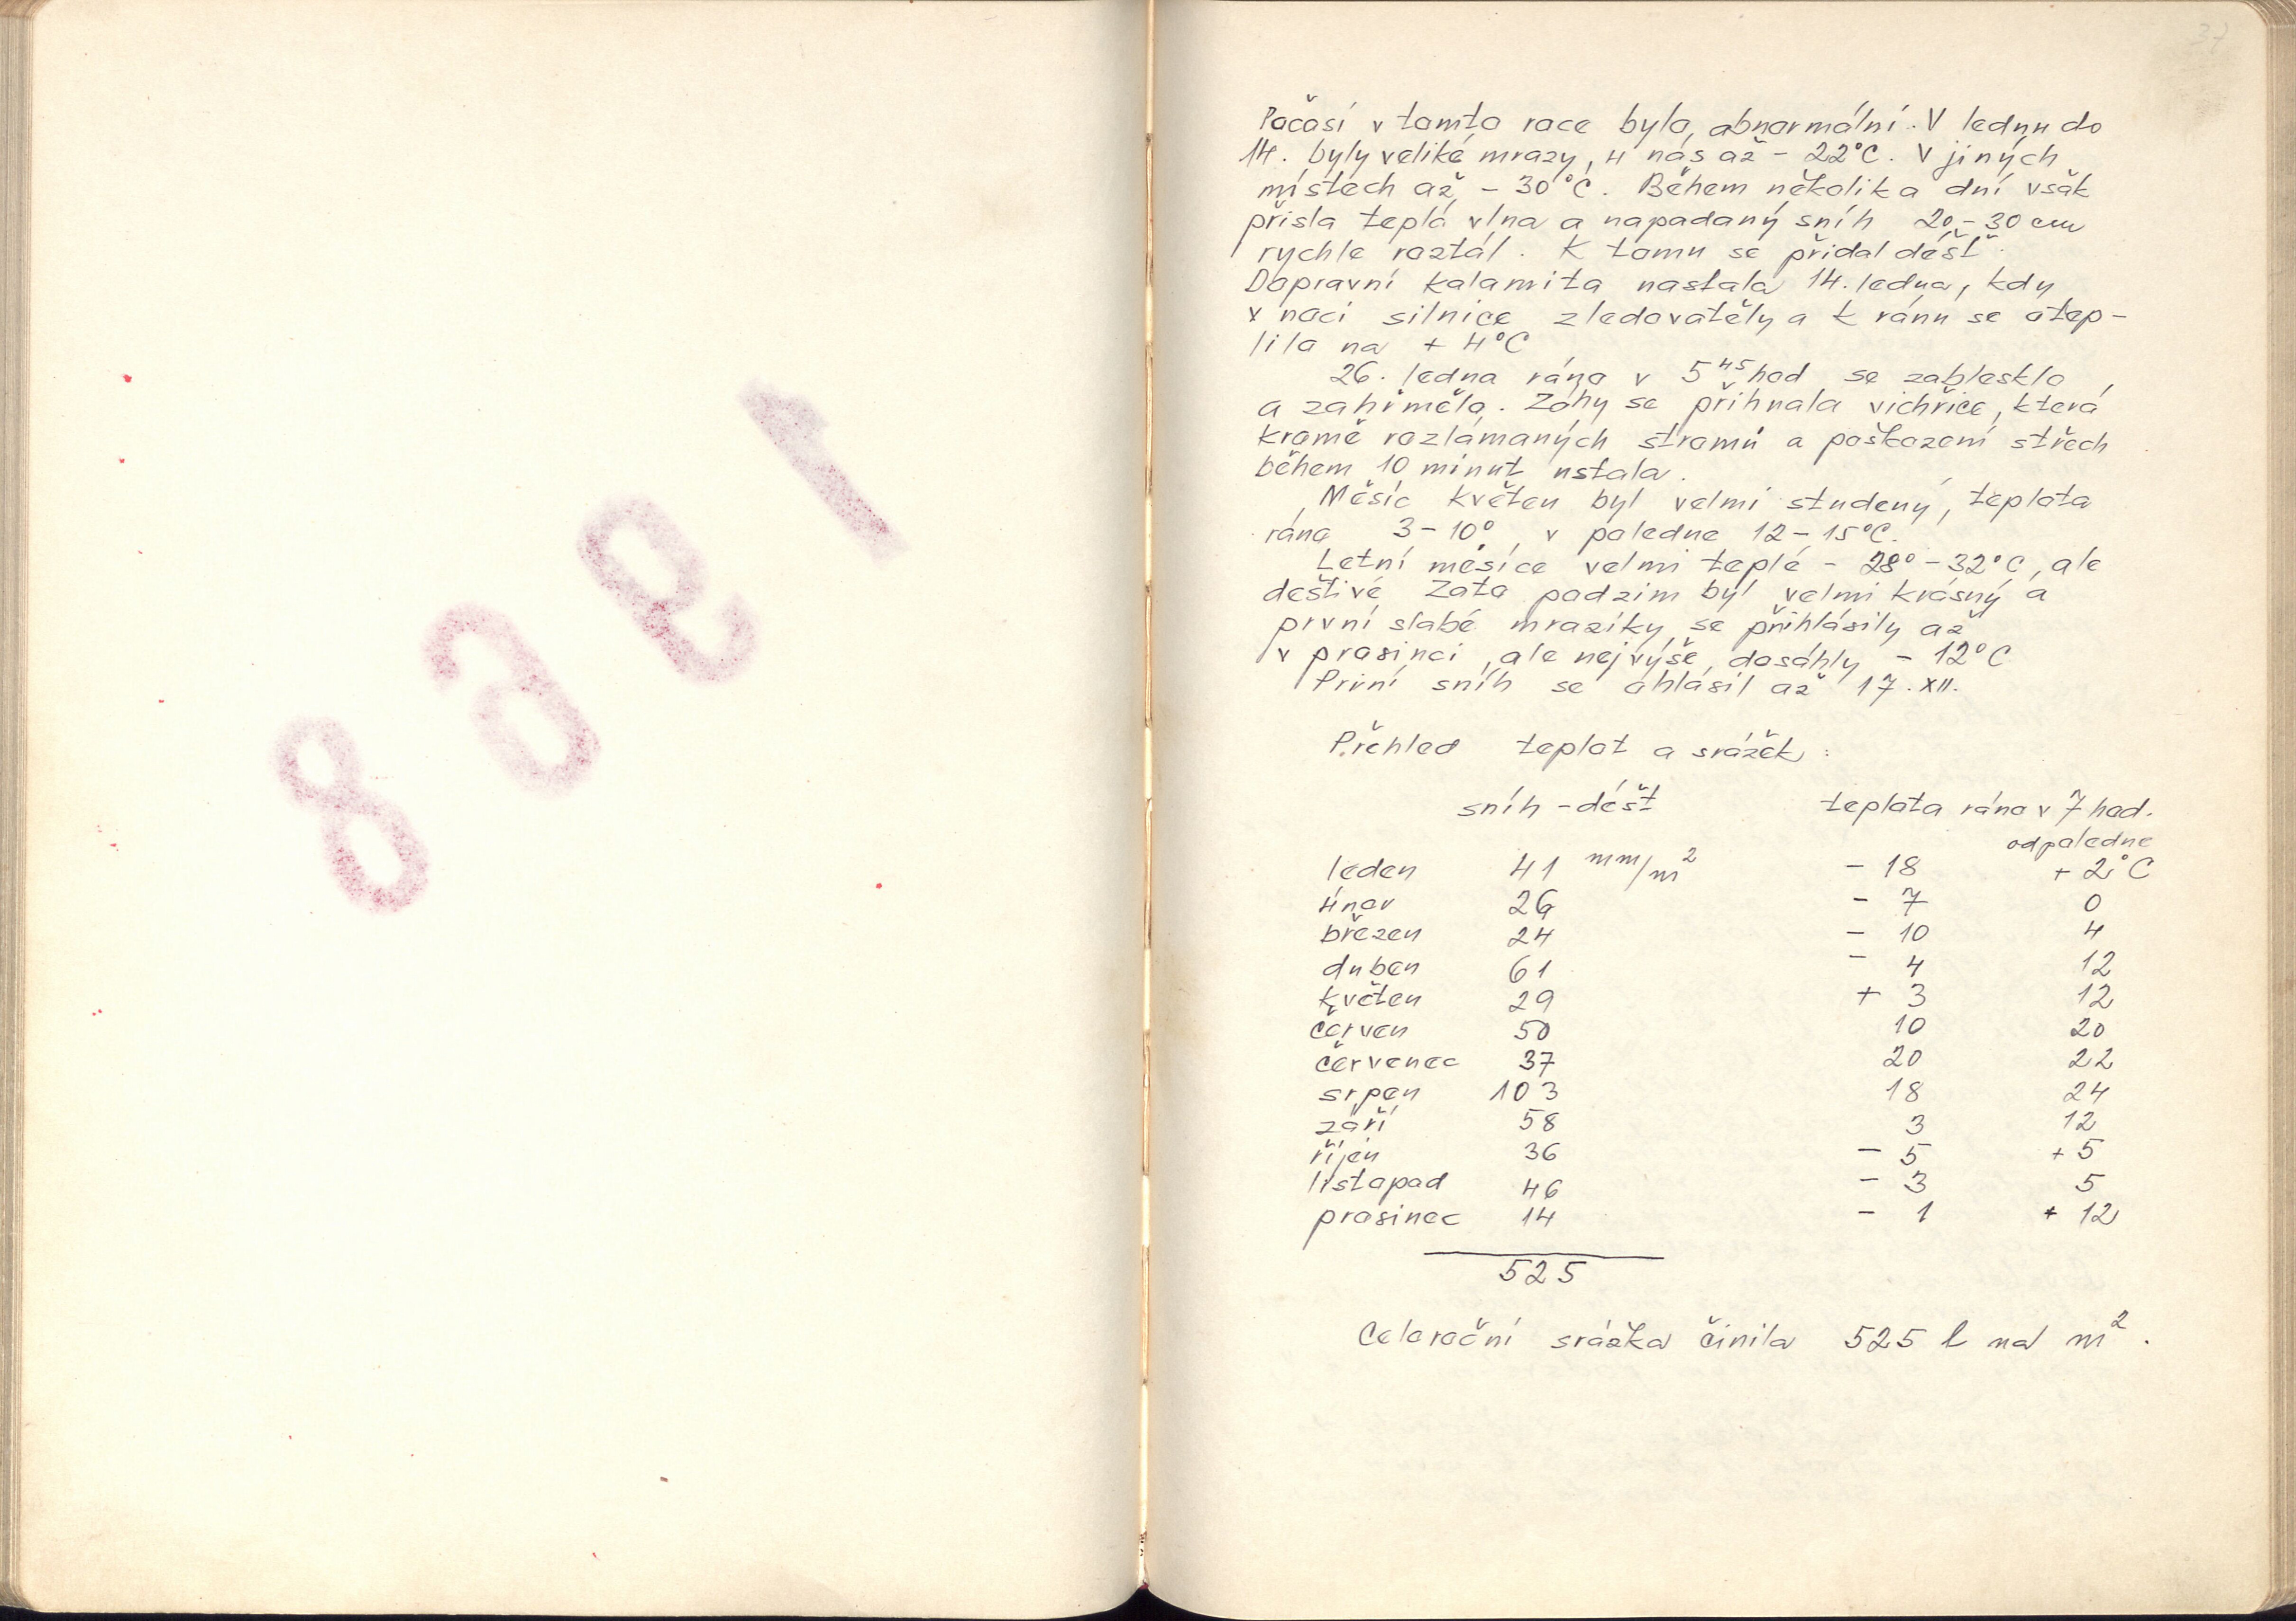 1968
37
Počasí v tomto roce bylo abnormální. V lednu do
14. byly veliké mrazy, u nás až - 22°C. V jiných
místech až - 30°C. Během několika dní však
přišla teplá vlna a napadaný sníh 20 - 30 cm
rychle roztál. K tomu se přidal déšť.
Dopravní kalamita nastala 14. ledna, kdy
v noci silnice zledovatěly a k ránu se otep-
lilo na + 4°C
26. ledna ráno v 5 45 hod se zablesklo
a zahřmělo. Záhy se přihnala vichřice, která
kromě rozlámaných stromů a poškození střech
během 10 minut ustala.
Měsíc květen byl velmi studený, teplota
ráno 3 - 10°, v poledne 12 - 15°C.
Letní měsíce velmi teplé - 28° - 32°C, ale
deštivé Zato podzim byl velmi krásný a
první slabé mrazíky se přihlásily až
v prosinci, ale nejvýše dosáhly - 12°C
První sníh se ohlásil až 17. XII.
Přehled teplot a srážek :
sníh - déšť teplota ráno v 7 hod.
odpoledne
leden 41 mm/m² - 18 + 2°C
únor 26 - 7 0
březen 24 - 10 4
duben 61 - 4 12
květen 29 + 3 12
červen 50 10 20
červenec 37 20 22
srpen 103 18 24
září 58 3 12
říjen 36 - 5 + 5
listopad 46 - 3 5
prosinec 14 - 1 + 12
525
Celoroční srážka činila 525 l na m².